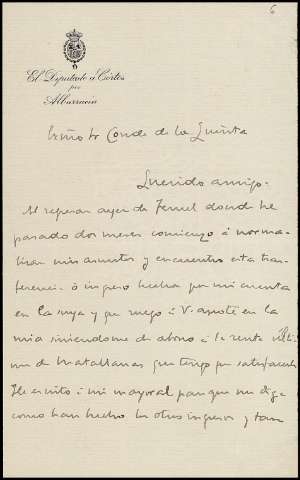 6
El Diputado á Cortes
por
Albarracín
Exmo Sr Conde de la Quinta
Querido amigo:
Al regresar ayer de Teruel donde he
pasado dos meses comienzo á norma-
lizar mis asuntos y encuentro esta trans-
ferencia ó ingreso hecha por mi cuenta
en la suya y que ruego á V. anote en la
mia sirviendome de abono á la renta
de Matallana que tengo que satisfacerle
He escrito á mi mayoral para que me diga
como han hecho los otros ingresos y tan